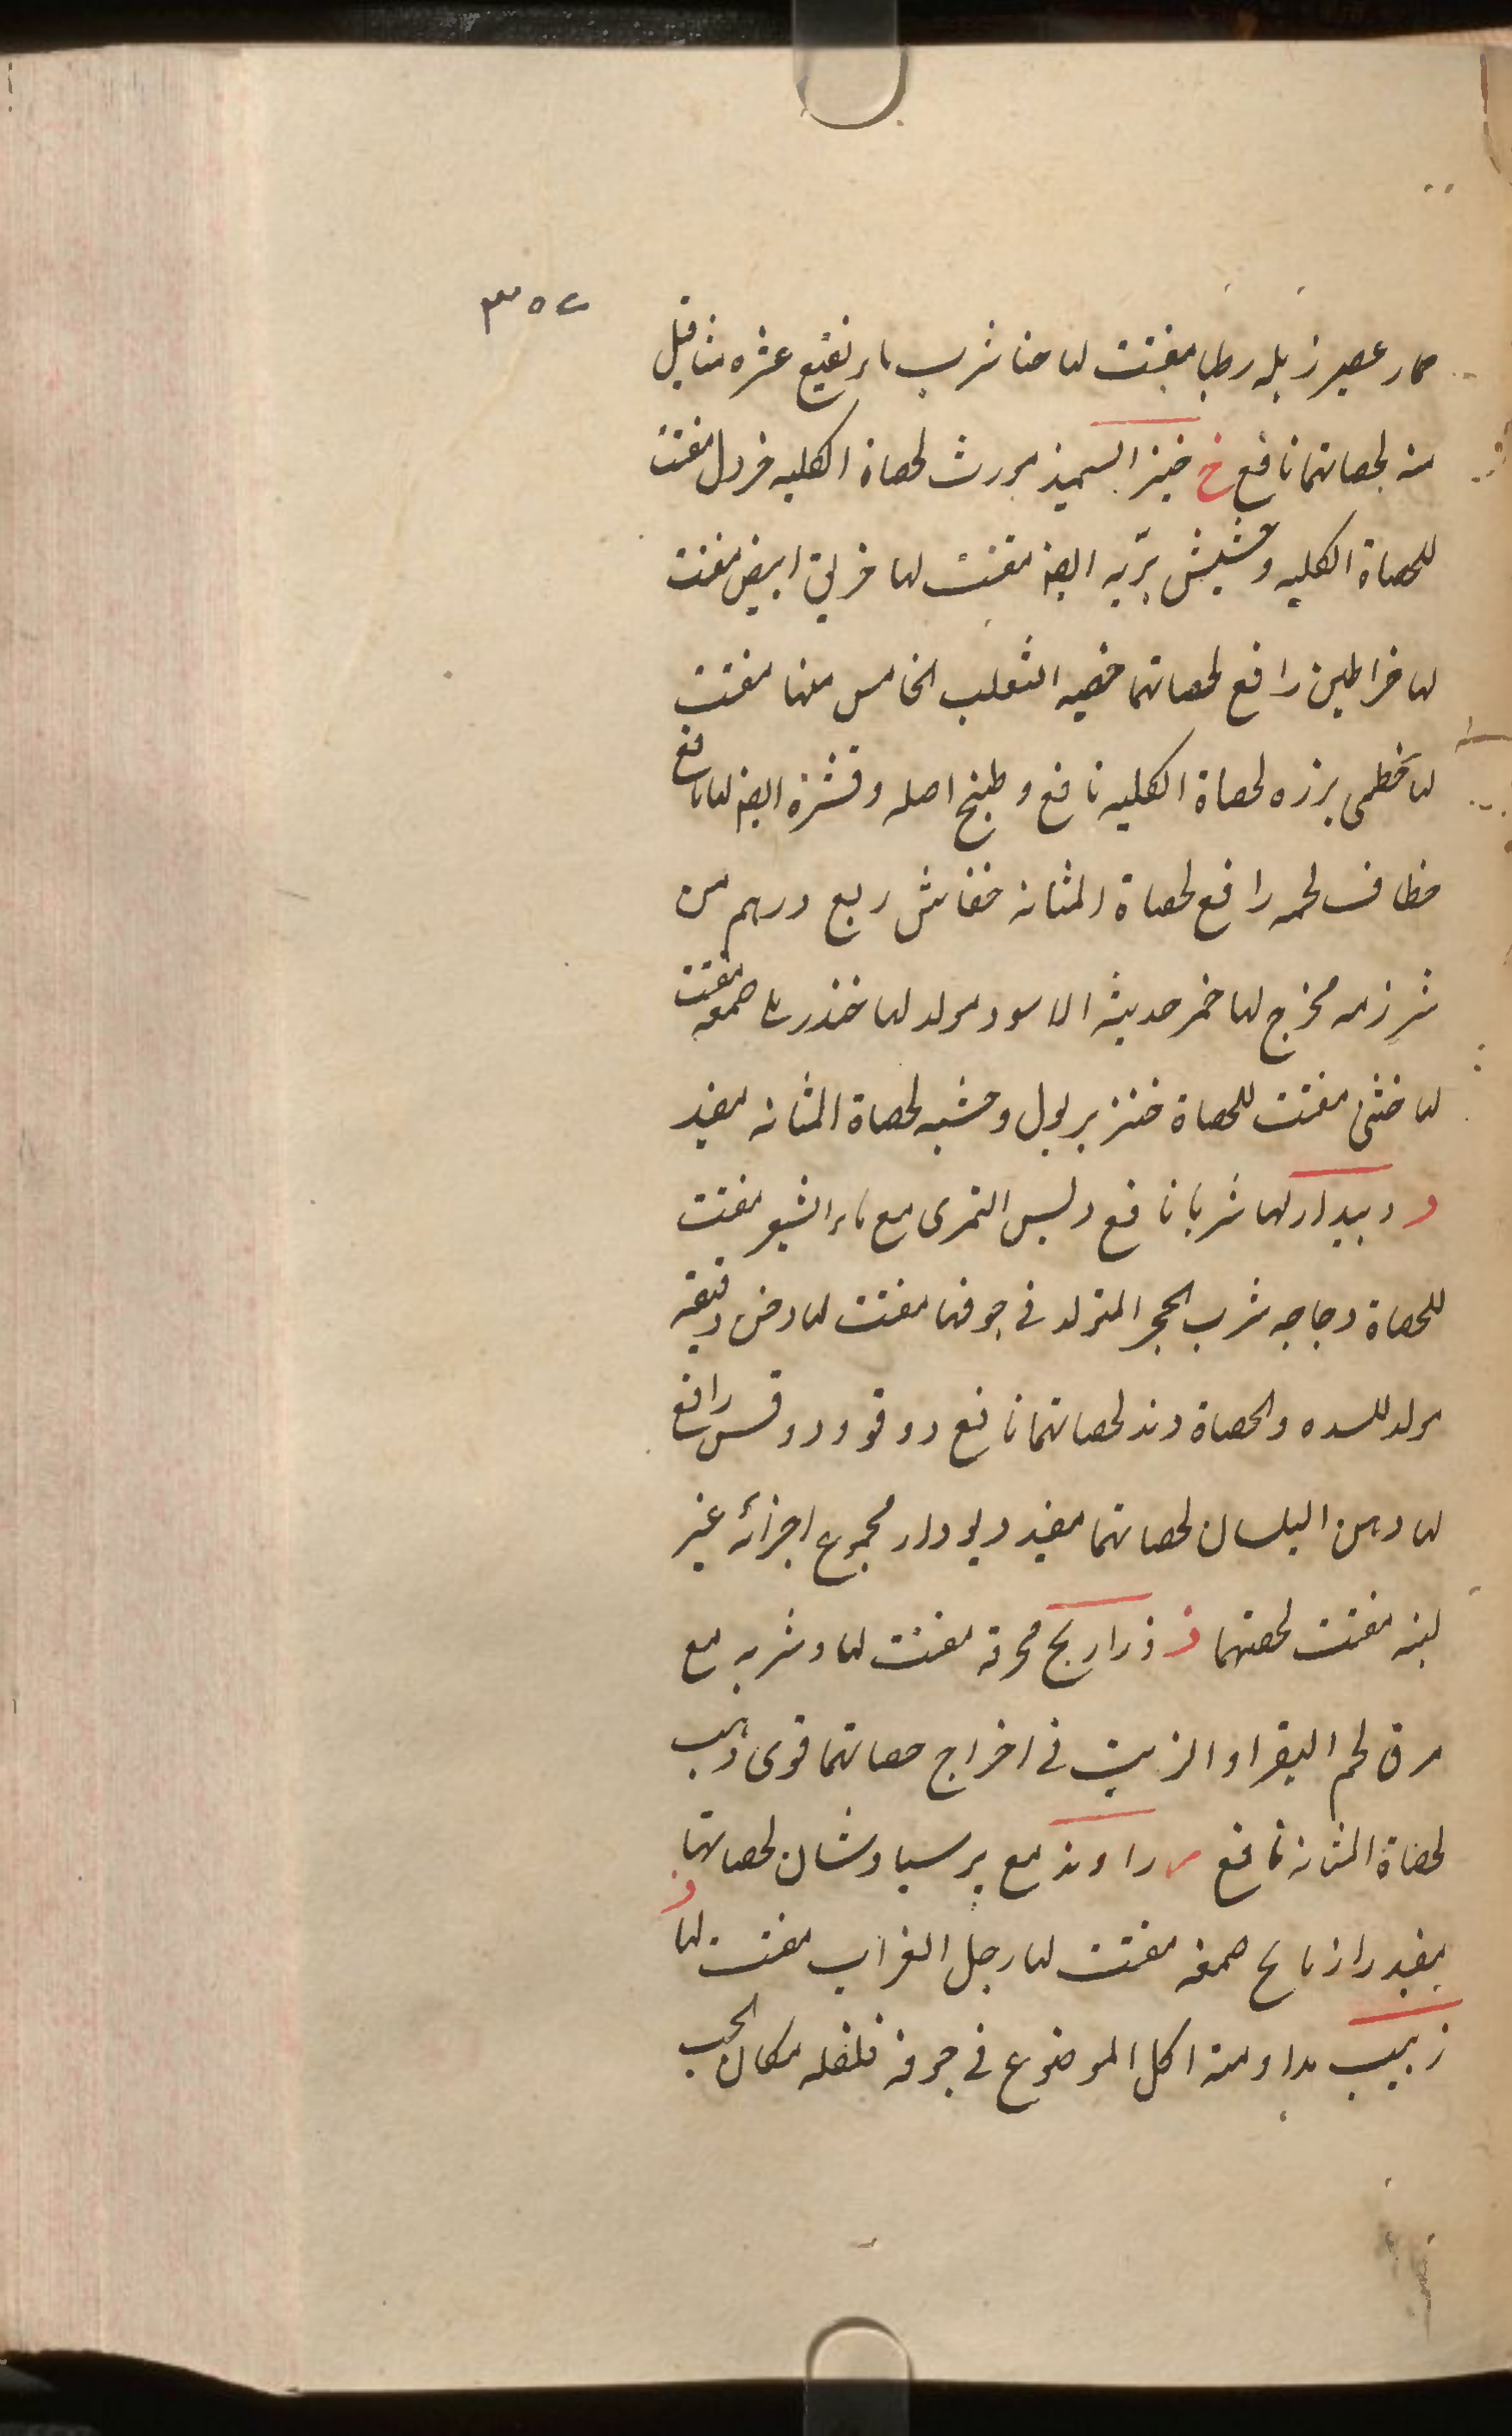 ٣٥٢
حمار عصير زبله رطبا مفتت لها حنا شرب ماء نقيع عشره مثاقيل
منه لحصاتهما نافع خ خبز السميذ مورث لحصاة الكليه خردل مفتت
للحصاة الكليه وحشيش بريه ايضا مفتت لها خربق ابيض مفتت
لها خراطين رافع لحصاتهما خصيه الثعلب الخامس منها مفتت
لها خطمى بزره لحصاة الكليه نافع وطبخ اصله وقشره ايضا لها نافع
خطاف لحمه رافع لحصاة المثانه خفاش ربع درهم من
مخرج لها خمر حديثه الاسود مولد لها صمغه مفتت
لها خنثى مفتت للحصاة خنزير بول وحشيه لحصاة المثانه مفيد
د ديبدار لها شربا نافع دبس التمرى مع ماء الشعير مفتت
للحصاة دجاجه شرب الحجر المتولد فى جوفها مفتت لها دخن دقيقه
مولد للسده والحصاة دند لحصاتهما نافع دوقو ودوقس رافع
لها دهن البلسان لحصاتهما مفيد ديودار مجموع اجزائه غير
لبنه مفتت لحصتهما ذ ذراريح محرقة مفتت لها وشربه مع
مرق لحم البقر او الزيت فى اخراج حصاتهما قوى ذهب
لحصاة المثانه نافع ر راوند مع برسياوشان لحصاتها
مفيد رازيانج صمغه مفتت لها رجل الغراب مفتت لها ز
زبيب مداومة اكل الموضوع فى جوفه فلفله مكان الحب